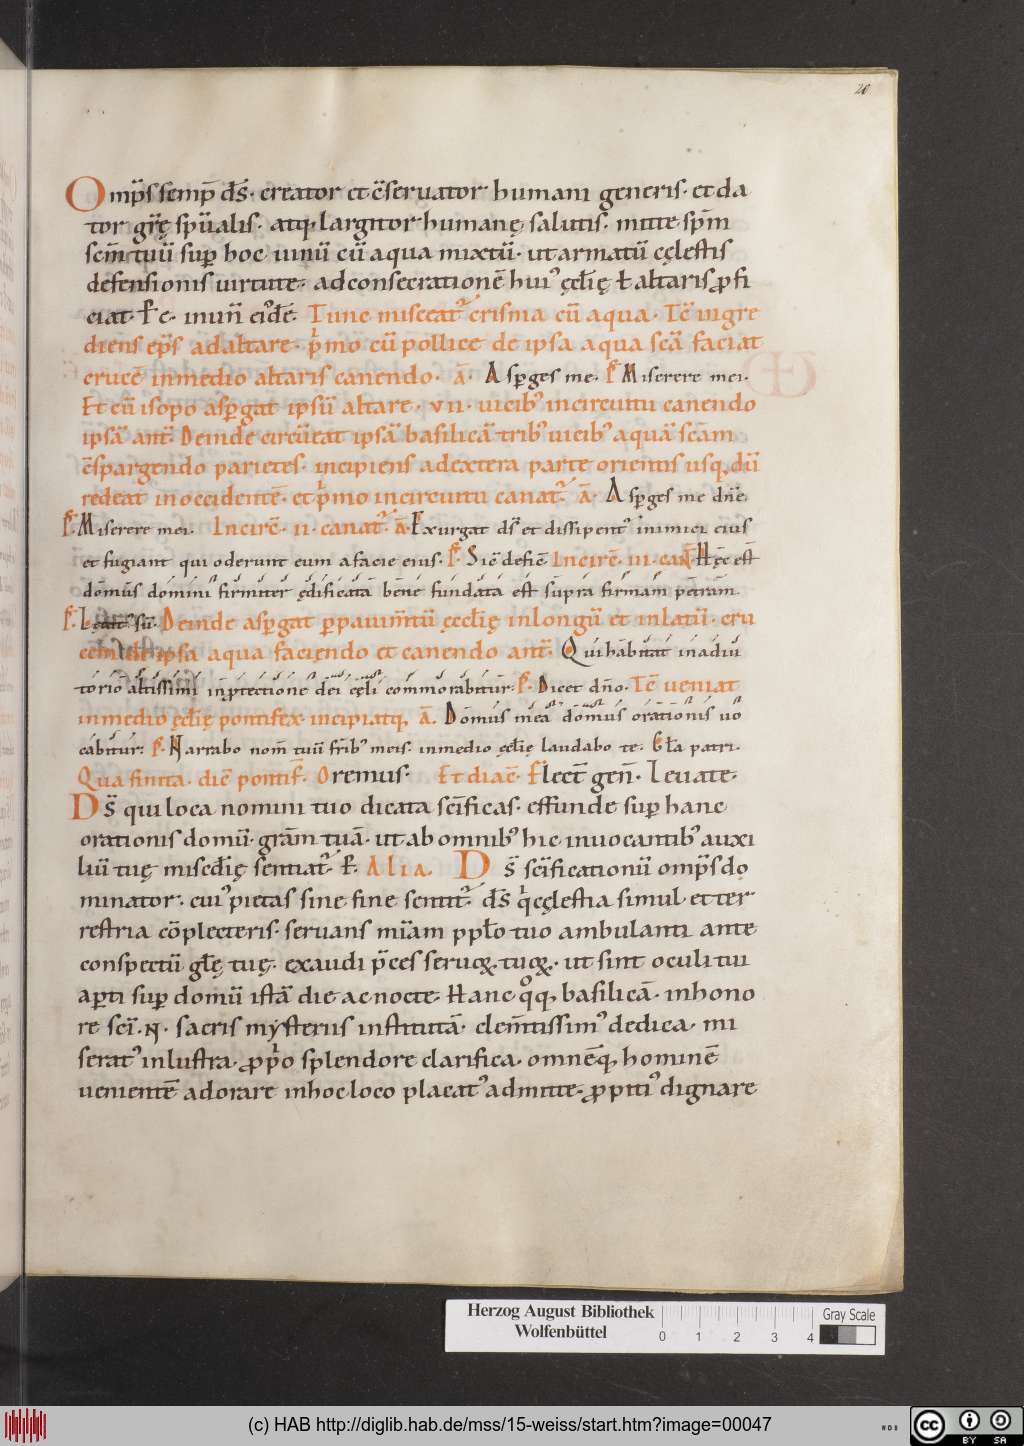 20
Omp̄s semp̄ d̄s· creator et c̄seruator humani generis· et da
tor gr̄ę spūalis· atq; largitor humanę salutis· mitte sp̄m
sc̄m tuū sup̱ hoc uinū cū aqua mixtū· ut armatū cęlestis
defensionis uirtute· ad consecrationē hui᾽ ęcl̄ię ł altaris ꝓfi
ciat· P̄ c· in un̄ ei᾽dē· Tunc misceat᾽ crisma cū aqua· Tc̄ ingre
diens ep̄s ad altare· pͥmo cū pollice de ipsa aqua sc̄a faciat
crucē in medio altaris canendo· ā· Asp̱ges me· P̄ Miserere mei·
Et cū isopo asp̱gat ipsū altare· vii· uicib᾽ in circuitu canendo
ipsā ant̄· Deinde circūeat ipsā basilicā trib᾽ uicib᾽ aquā sc̄am
c̄spargendo parietes· incipiens a dextera parte orientis usq; dū
redeat in occidentē· et pͥmo in circuitu canat᾽· ā· Asp̱ges me dn̄e·
P̄ Miserere mei· In circ̄· ii· canat᾽· ā· Exurgat ds᾽ et dissipent᾽ inimici eius
et fugiant qui oderunt eum a facie eius· P̄· Sic̄ defic̄· In circ̄· iii· can̄· Hęc est
domus domini firmiter ędificata bene fundata est supra firmam petram
P̄· sū· Deinde asp̱gat p̱ pauim̄tū ęccl̄ię in longū et in latū· cru
de ipsa aqua faciendo et canendo ant̄· Qui habitat in adiu
torio altissimi in ꝓtectione dei cęli commorabitur· P̄· Dicet dn̄o· Tc̄ ueniat
in medio ęcl̄ię pontifex· incipiatq; ā· Domus mea domus orationis uo
cabitur· P̄· Narrabo nom̄ tuū fr̄ib᾽ meis· in medio ęcl̄ię laudabo te· Gl̄a patri·
Qua finita· dic̄ pontif̄· Oremus· Et diac̄· Flect̄ gen̄· Leuate·
Ds̄ qui loca nomini tuo dicata sc̄ificas· effunde sup̱ hanc
orationis domū· gr̄am tuā· ut ab omnib᾽ hic inuocantib᾽ auxi
liū tuę misc̄dię sentiat᾽· P̄· Alia· Ds̄ sc̄ificationū omp̄s do
minator· cui᾽ pietas sine fine sentit᾽· ds̄ qͥ cęlestia simul et ter
restria cōplecteris· seruans mīam ppl̄o tuo ambulanti ante
conspectū gl̄ę tuę· exaudi p̄ces seruoꝝ tuoꝝ· ut sint oculi tui
ap̱ti sup̱ domū istā die ac nocte· Hanc qͦq; basilicā· in hono
re sc̄i· N· sacris mysteriis institutā· clem̄tissim᾽ dedica· mi
serat᾽ inlustra· ꝓpͥo splendore clarifica· omnēq; hominē
uenientē adorare in hoc loco placat᾽ admitte· ꝓpiti᾽ dignare
Herzog August Bibliothek
Wolfenbüttel
0 1 2 3 4
Gray Scale
(c) HAB http://diglib.hab.de/mss/15-weiss/start.htm?image=00047
CC BY SA